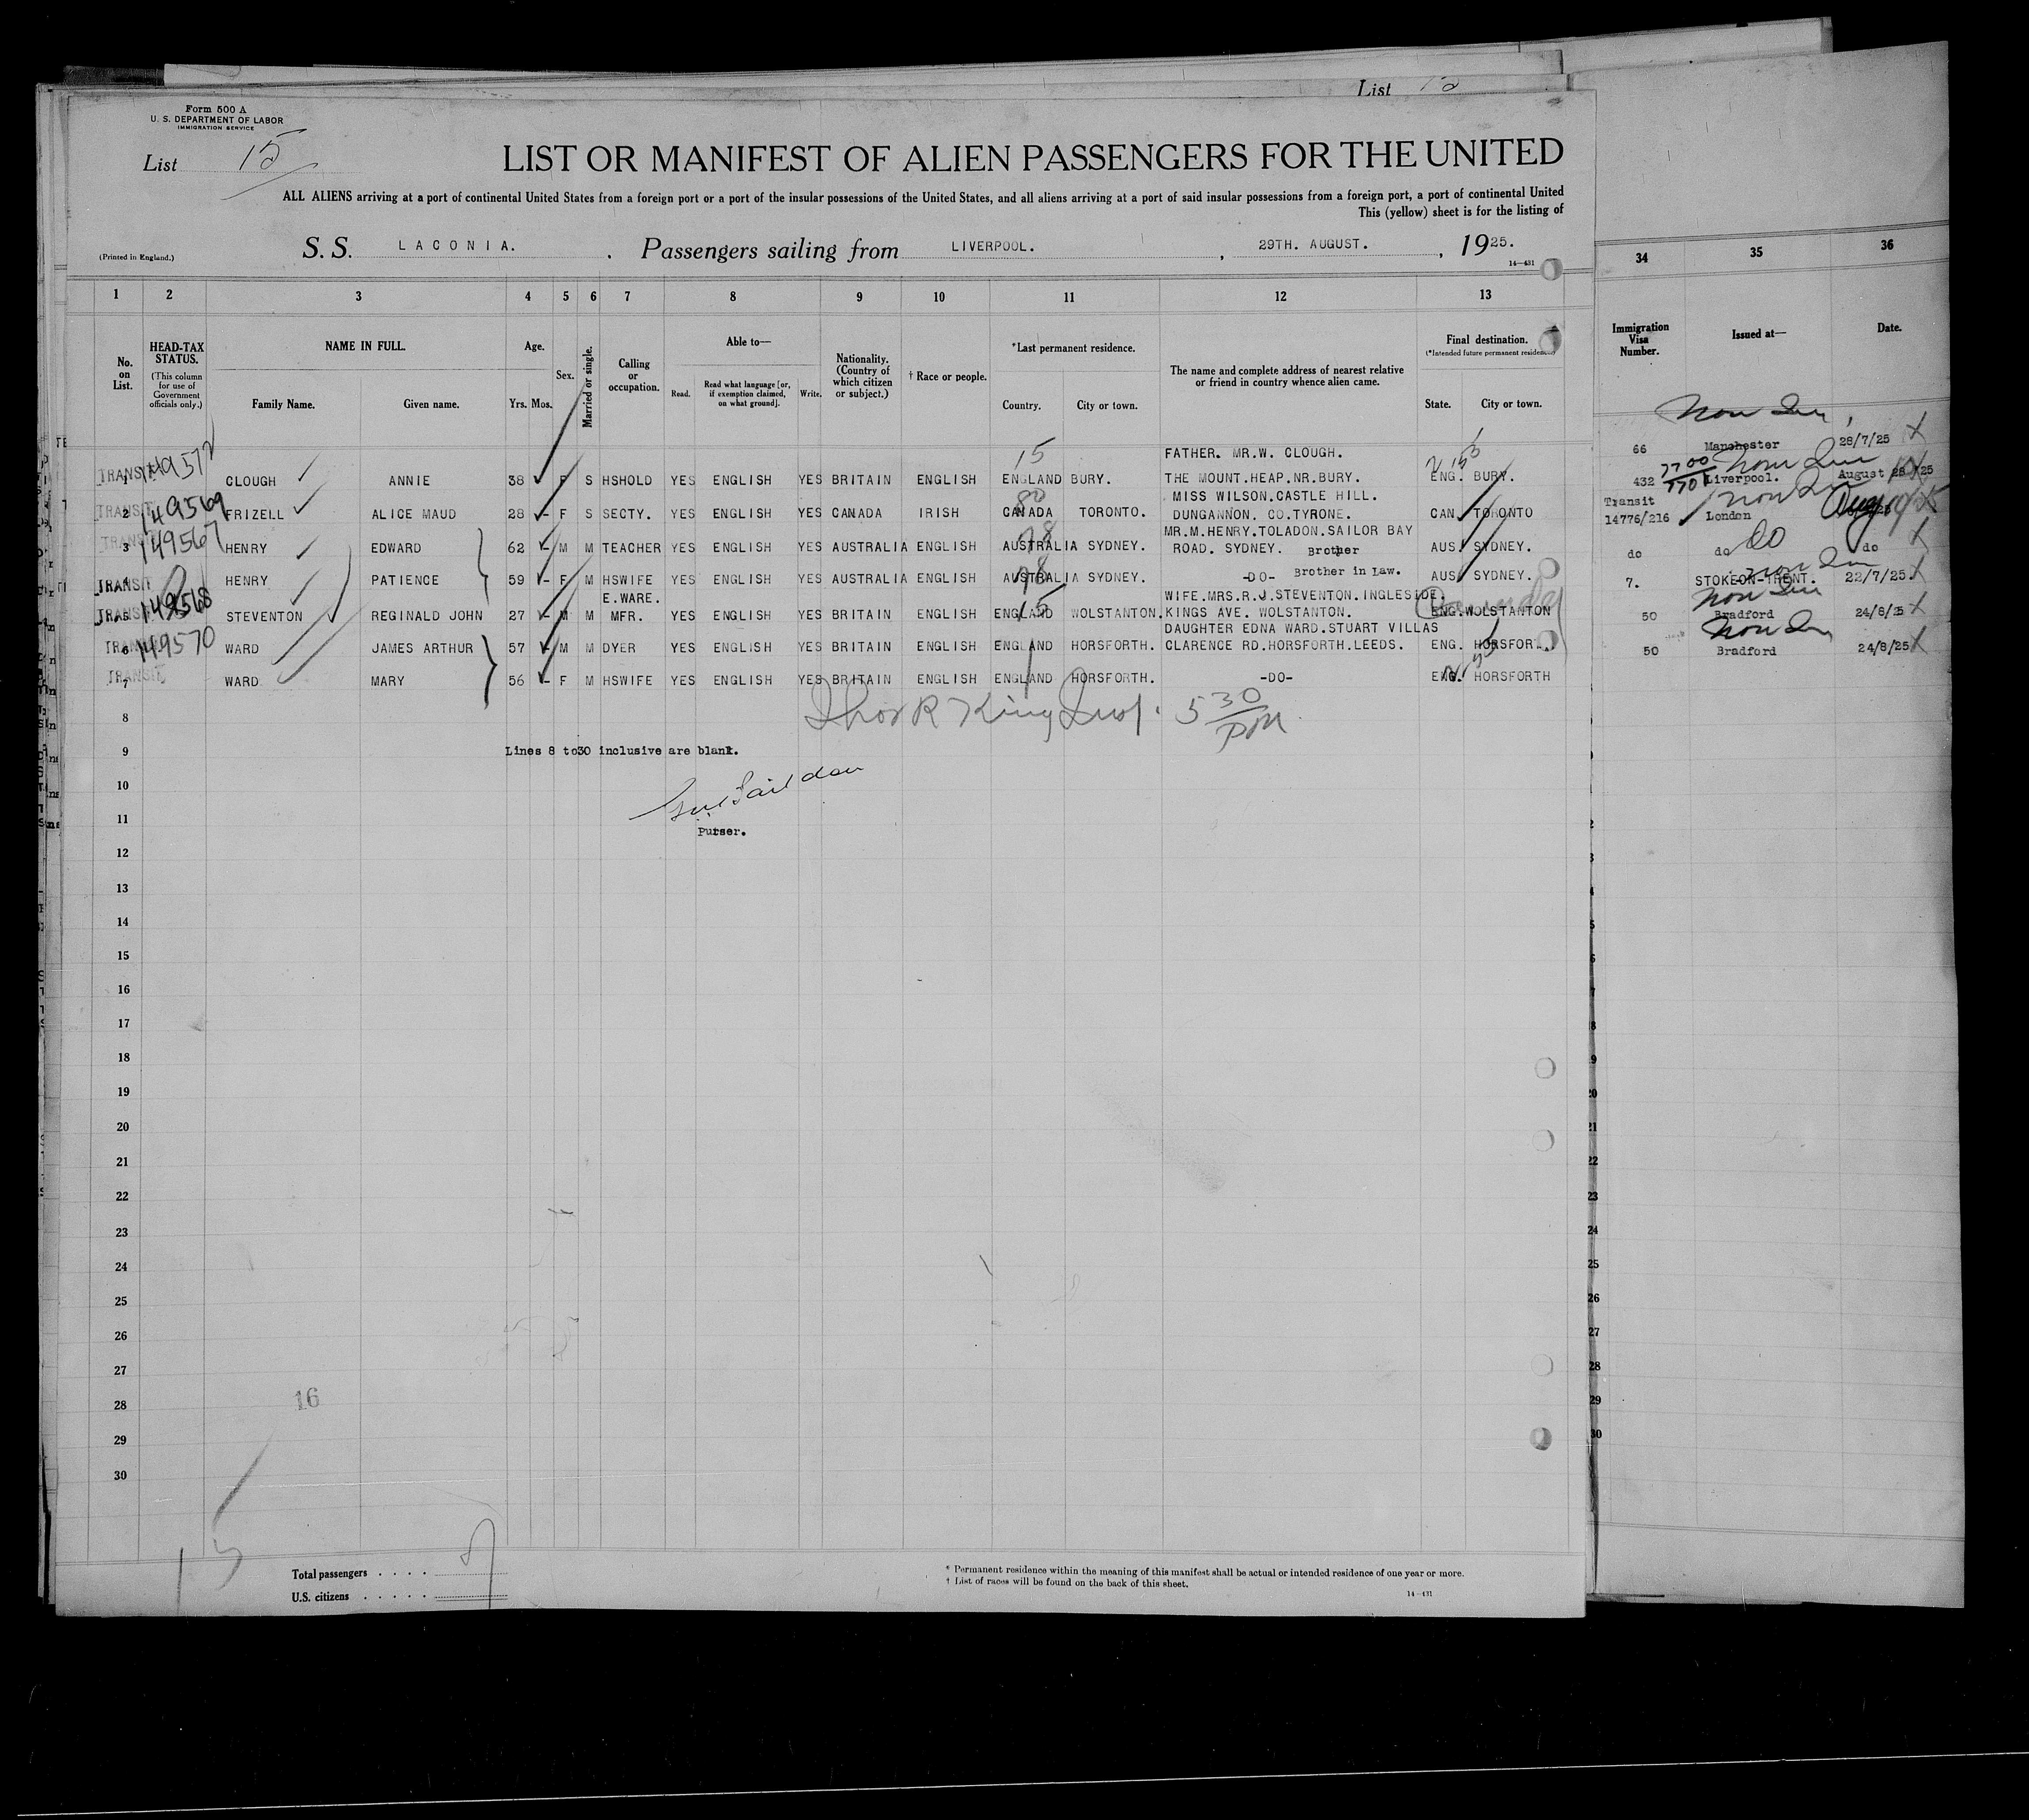 List 15
Form 500 A
U. S. DEPARTMENT OF LABOR
IMMIGRATION SERVICE
List 15
LIST OR MANIFEST OF ALIEN PASSENGERS FOR THE UNITED
ALL ALIENS arriving at a port of continental United States from a foreign port or a port of the insular possessions of the United States, and all aliens arriving at a port of said insular possessions from a foreign port, a port of continental United
This (yellow) sheet is for the listing of
(Printed in England.)
S. S. LACONIA. Passengers sailing from LIVERPOOL. , 29TH. AUGUST. , 1925.
14—431
1 2 3 4 5 6 7 8 9 10 11 12 13 34 35 36
No. on List.
HEAD-TAX STATUS.
(This column for use of Government officials only.)
NAME IN FULL.
Family Name. Given name.
Age.
Yrs. Mos.
Sex.
Married or single.
Calling or occupation.
Able to—
Read. Read what language [or, if exemption claimed, on what ground]. Write.
Nationality. (Country of which citizen or subject.)
† Race or people.
*Last permanent residence.
Country. City or town.
The name and complete address of nearest relative or friend in country whence alien came.
Final destination.
(*Intended future permanent residence.)
State. City or town.
Immigration Visa Number.
Issued at—
Date.
FATHER. MR.W. CLOUGH.
TRANSIT 149572 1 CLOUGH ANNIE 38 F S HSHOLD YES ENGLISH YES BRITAIN ENGLISH ENGLAND BURY. THE MOUNT.HEAP.NR.BURY. ENG. BURY.
MISS WILSON.CASTLE HILL.
TRANSIT 149569 2 FRIZELL ALICE MAUD 28 - F S SECTY. YES ENGLISH YES CANADA IRISH CANADA TORONTO. DUNGANNON. CO.TYRONE. CAN. TORONTO
MR.M.HENRY.TOLADON.SAILOR BAY
TRANSIT 149567 3 HENRY EDWARD 62 - M M TEACHER YES ENGLISH YES AUSTRALIA ENGLISH AUSTRALIA SYDNEY. ROAD. SYDNEY. Brother AUS. SYDNEY.
TRANSIT 4 HENRY PATIENCE 59 - F M HSWIFE YES ENGLISH YES AUSTRALIA ENGLISH AUSTRALIA SYDNEY. -DO- Brother in Law. AUS. SYDNEY.
E.WARE. WIFE.MRS.R.J.STEVENTON.INGLESIDE.
TRANSIT 149568 5 STEVENTON REGINALD JOHN 27 - M M MFR. YES ENGLISH YES BRITAIN ENGLISH ENGLAND WOLSTANTON. KINGS AVE. WOLSTANTON. ENG. WOLSTANTON
DAUGHTER EDNA WARD.STUART VILLAS
TRANSIT 149570 6 WARD JAMES ARTHUR 57 - M M DYER YES ENGLISH YES BRITAIN ENGLISH ENGLAND HORSFORTH. CLARENCE RD.HORSFORTH.LEEDS. ENG. HORSFOR
TRANSIT 7 WARD MARY 56 - F M HSWIFE YES ENGLISH YES BRITAIN ENGLISH ENGLAND HORSFORTH. -DO- ENG. HORSFORTH
66 Manchester 28/7/25
432 Liverpool. August 28 1925
Transit
14776/216 London
do do do
7. STOKE-ON-TRENT. 22/7/25.
50 Bradford 24/8/25
50 Bradford 24/8/25
8 King 5 30 PM
9 Lines 8 to30 inclusive are blank.
10
11
Purser.
12
13
14
15
16
17
18
19
20
21
22
23
24
25
26
27
28
16
29
30
15
Total passengers . . . .
U.S. citizens . . . . .
* Permanent residence within the meaning of this manifest shall be actual or intended residence of one year or more.
† List of races will be found on the back of this sheet.
14—431